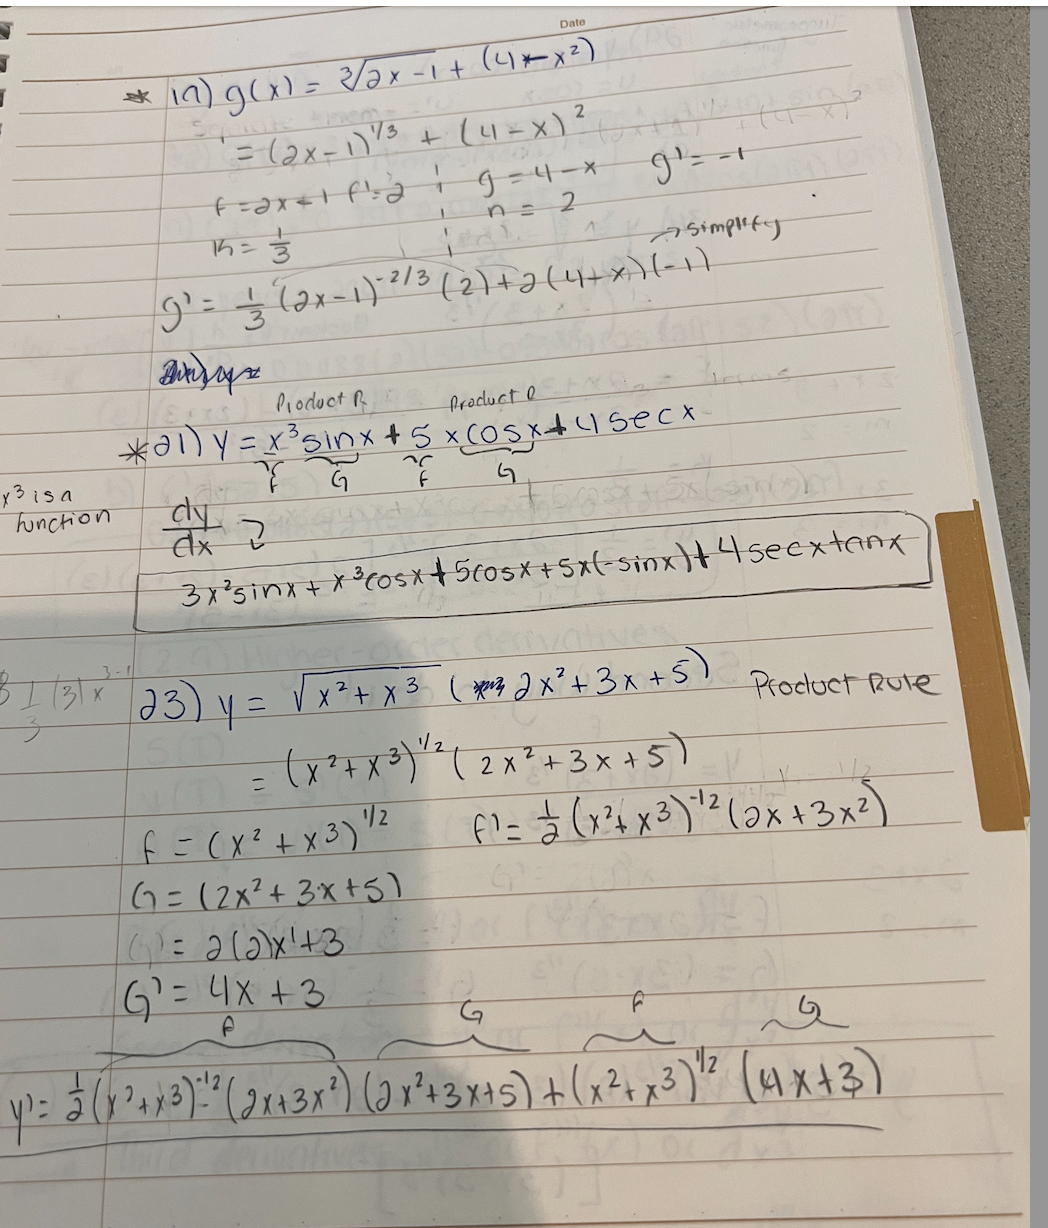 Date
* 17) g(x) = ∛2x-1 + (4x-x²)
' = (2x-1)^1/3 + (4-x)²
f = 2x-1 f'=2 g = 4-x g' = -1
n = 1/3 n = 2
→simplify
g' = 1/3 (2x-1)^-2/3 (2)+2(4+x)(-1)
Product R. Product R
*21) y = x³sinx + 5xcosx + 4secx
f G f G
x³ is a
function
dy/dx
3x²sinx + x³cosx + 5cosx + 5x(-sinx) + 4secxtanx
1/3 (3)x^3-1
23) y = √x²+x³ (2x²+3x+5) Product Rule
= (x²+x³)^1/2 (2x²+3x+5)
f = (x²+x³)^1/2 f' = 1/2 (x²+x³)^-1/2 (2x+3x²)
G = (2x²+3x+5)
G' = 2(2)x¹+3
G' = 4x+3
f G f G
y' = 1/2 (x²+x³)^-1/2 (2x+3x²) (2x²+3x+5) + (x²+x³)^1/2 (4x+3)